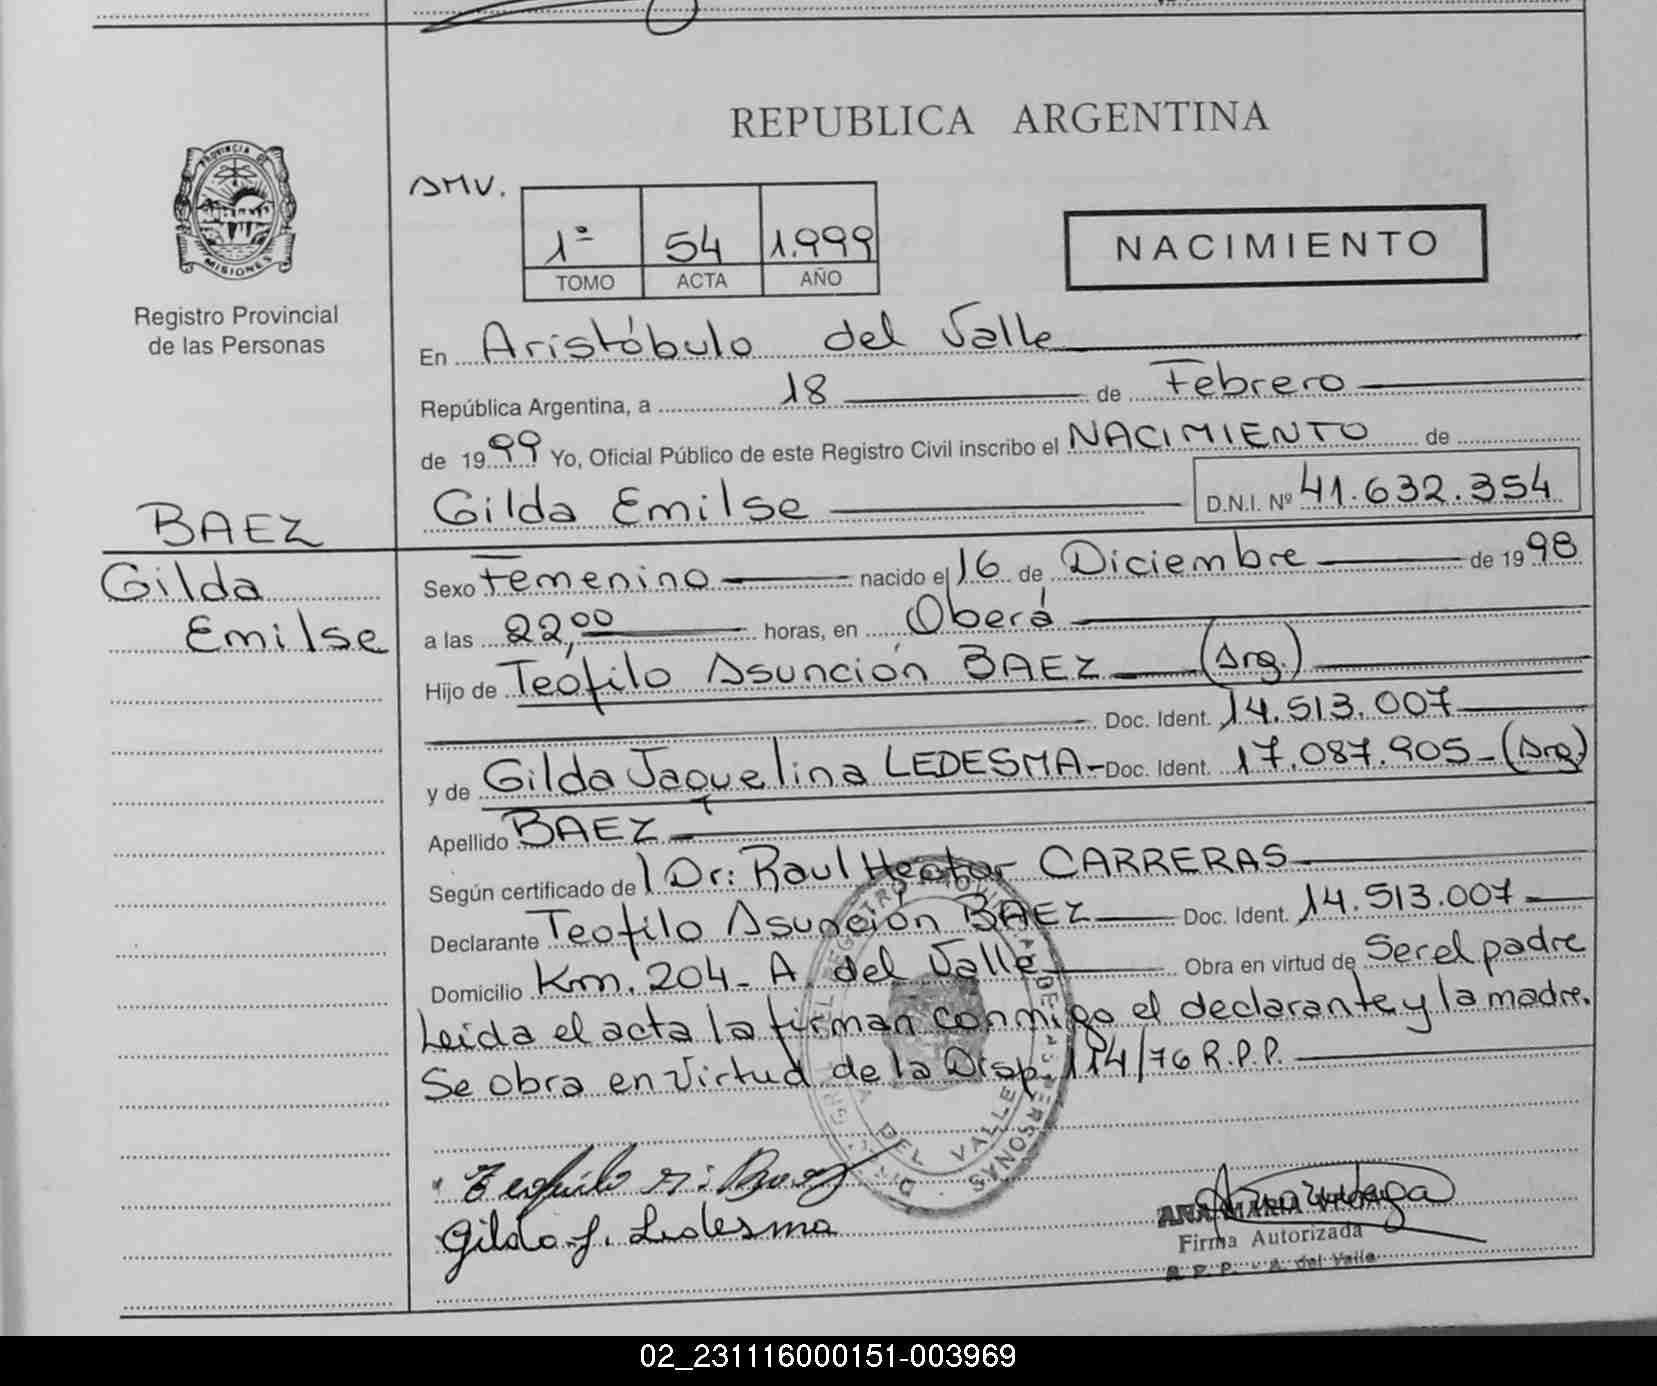 REPUBLICA ARGENTINA
PROVINCIA DE
MISIONES
Registro Provincial
de las Personas
AMV.
1º 54 1.999
TOMO ACTA AÑO
NACIMIENTO
En Aristóbulo del Valle
República Argentina, a 18 de Febrero
de 1999 Yo, Oficial Público de este Registro Civil inscribo el NACIMIENTO de
BAEZ
Gilda Emilse D.N.I. Nº 41.632.354
Gilda
Emilse
Sexo Femenino nacido el 16 de Diciembre de 1998
a las 22,00 horas, en Oberá
Hijo de Teófilo Asunción BAEZ (Arg.)
Doc. Ident. 14.513.007
y de Gilda Jaquelina LEDESMA- Doc. Ident. 17.087.905-(Arg)
Apellido BAEZ
Según certificado del Dr: Raul Hector CARRERAS
Declarante Teofilo Asunción BAEZ Doc. Ident. 14.513.007
Domicilio Km. 204- A del Valle Obra en virtud de Ser el padre
Leida el acta la firman conmigo el declarante y la madre.
Se obra en virtud de la Disp. 114/76 R.P.P.
DEL VALLE
Gilda J. Ledesma
ANA MARIA
Firma Autorizada
R. P. P. - A. del Valle
02_231116000151-003969